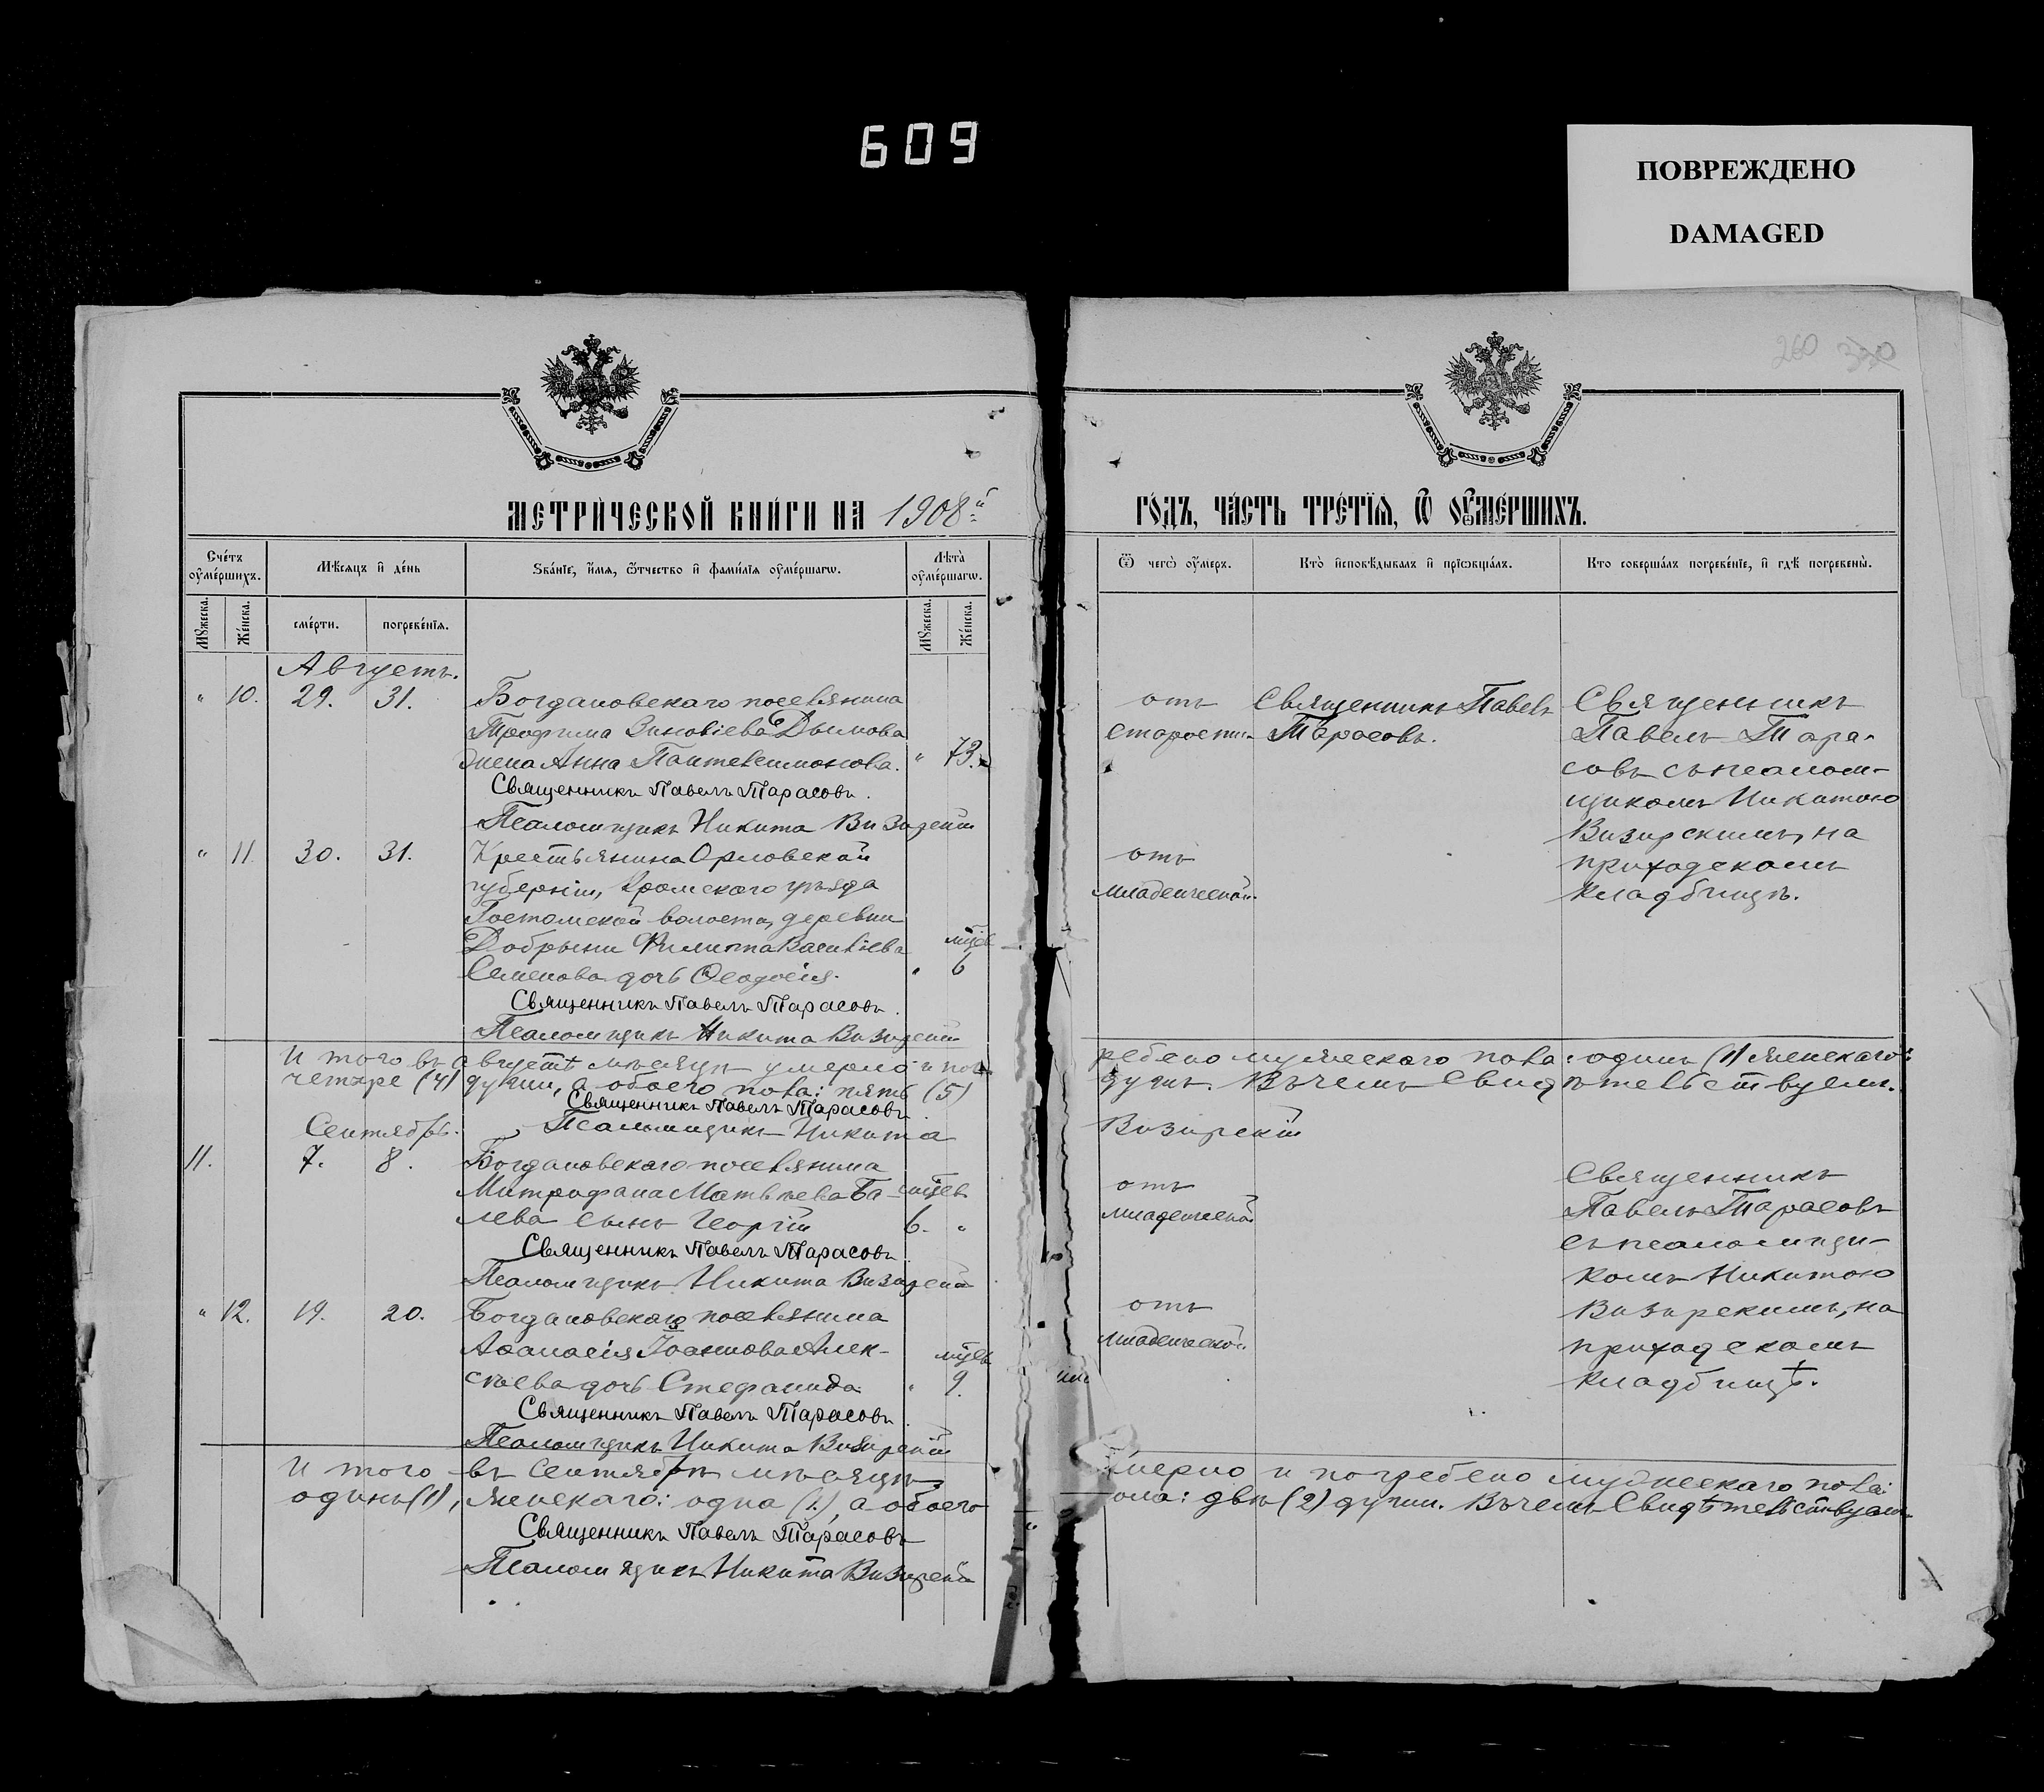 609
ПОВРЕЖДЕНО
DAMAGED
260 330
МЕТРИЧЕСКОЙ КНИГИ НА 1908й
ГОДЪ, ЧАСТЬ ТРЕТІЯ, Ѿ ОУМЕРШИХЪ.
Счетъ оумершихъ.
Мѣсяцъ и день
Званїе, имя, ѿчество и фамилїя оумершагѡ.
Лѣта оумершагѡ.
Мужеска.
Женска.
смерти.
погребенїя.
Мужеска.
Женска.
Ѿ чегѡ оумеръ.
Кто исповѣдывалъ и прїѡбщалъ.
Кто совершалъ погребенїе, и гдѣ погребены.
Августъ.
" 10. 29. 31. Богдановскаго поселянина
Трофима Зиновіева Дымова
жена Анна Пантелеимонова. " 73.
Священникъ Павелъ Тарасовъ.
Псаломщикъ Никита Визирскій
отъ
старости.
Священникъ Павелъ
Тарасовъ.
Священникъ
Павелъ Тара-
совъ съ псалом-
щикомъ Никитою
Визирскимъ, на
приходскомъ
кладбищѣ.
" 11. 30. 31. Крестьянина Орловской
губерніи, Кромскаго уѣзда
Гостомской волости, деревни
Добрыни Филиппа Васильева
Семенова дочь Ѳеодосія. " мѣсц. 6
Священникъ Павелъ Тарасовъ.
Псаломщикъ Никита Визирскій
отъ
младенческой.
И того въ августѣ мѣсяцѣ умерло и пог-
ребено мужескаго пола: одинъ (1) женскаго:
четыре (4) души, а обоего пола: пять (5)
душъ. Въ чемъ свидѣтельствуемъ.
Священникъ Павелъ Тарасовъ.
Псаломщикъ Никита
Визирскій
Сентябрь.
11. 7. 8. Богдановскаго поселянина
Митрофана Матвѣева Ба- мѣсц.
лева сынъ Георгій 6. "
Священникъ Павелъ Тарасовъ.
Псаломщикъ Никита Визирскій
отъ
младенческой
Священникъ
Павелъ Тарасовъ
съ псаломщи-
комъ Никитою
Визирскимъ, на
приходскомъ
кладбищѣ.
" 12. 19. 20. Богдановскаго поселянина
Аѳанасія Іоаннова Алек-
сѣева дочь Стефанида " мѣсц. 9.
Священникъ Павелъ Тарасовъ.
Псаломщикъ Никита Визирскій
отъ
младенческой.
И того въ сентябрѣ мѣсяцѣ
умерло и погребено мужескаго пола:
одинъ (1), женскаго: одна (1), а обоего
пола: двѣ (2) души. Въ чемъ свидѣтельствуемъ.
Священникъ Павелъ Тарасовъ
Псаломщикъ Никита Визирскій